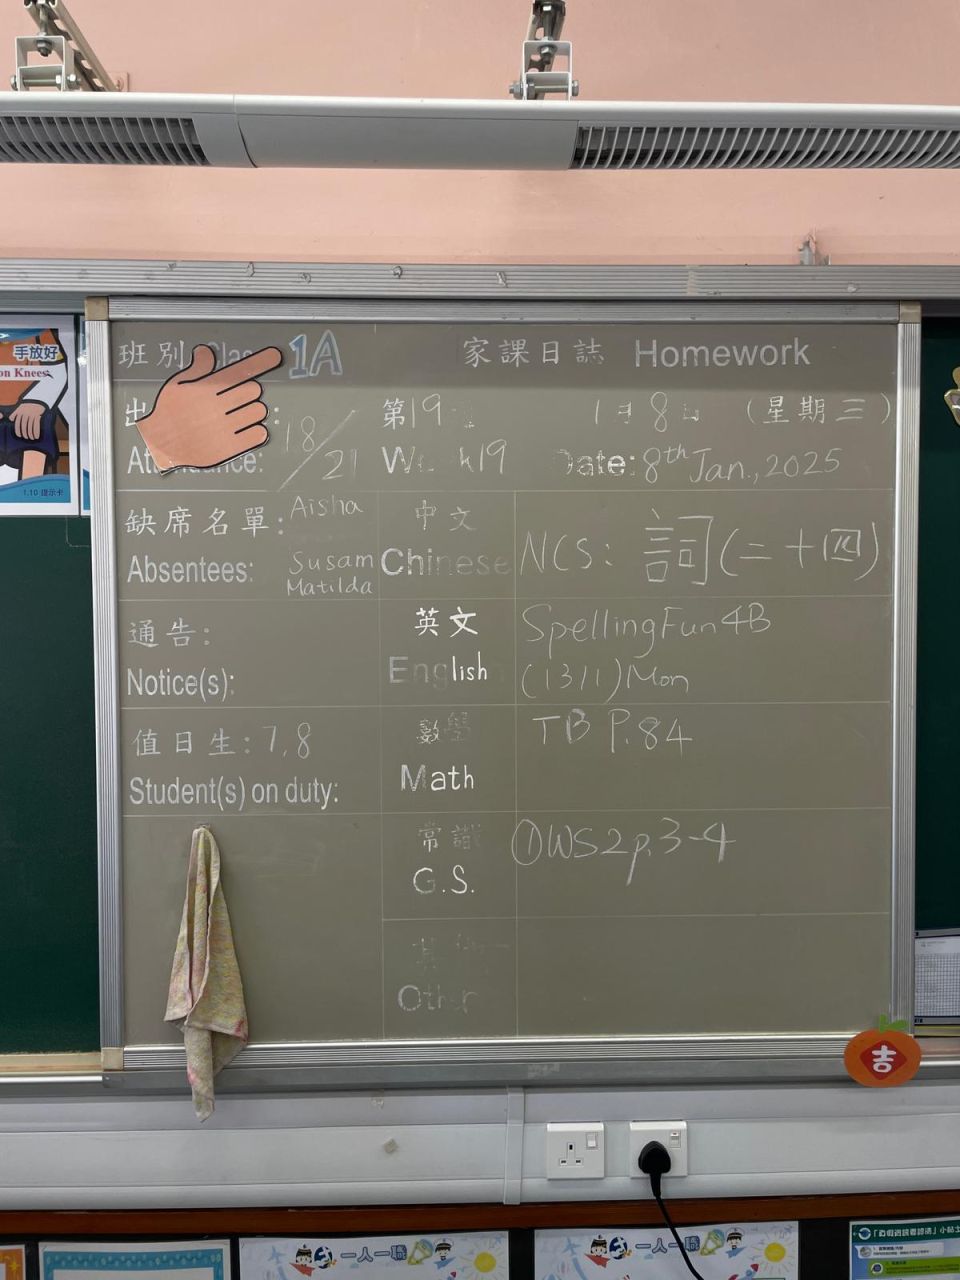 手放好
on Knees
1.10 提示卡
班別 Clas 1A
家課日誌 Homework
出 : 18/21
Att ance:
第19
W k19
1月8日 (星期三)
Date: 8th Jan., 2025
缺席名單: Aisha
Absentees: Susam
Matilda
中文
Chinese
NCS: 詞(二十四)
通告:
Notice(s):
英文
English
SpellingFun4B
(13/1)Mon
值日生: 7,8
Student(s) on duty:
數學
Math
TB P.84
常識
G.S.
①WS2p.3-4
其他
Other
吉
一人一職
一人一職